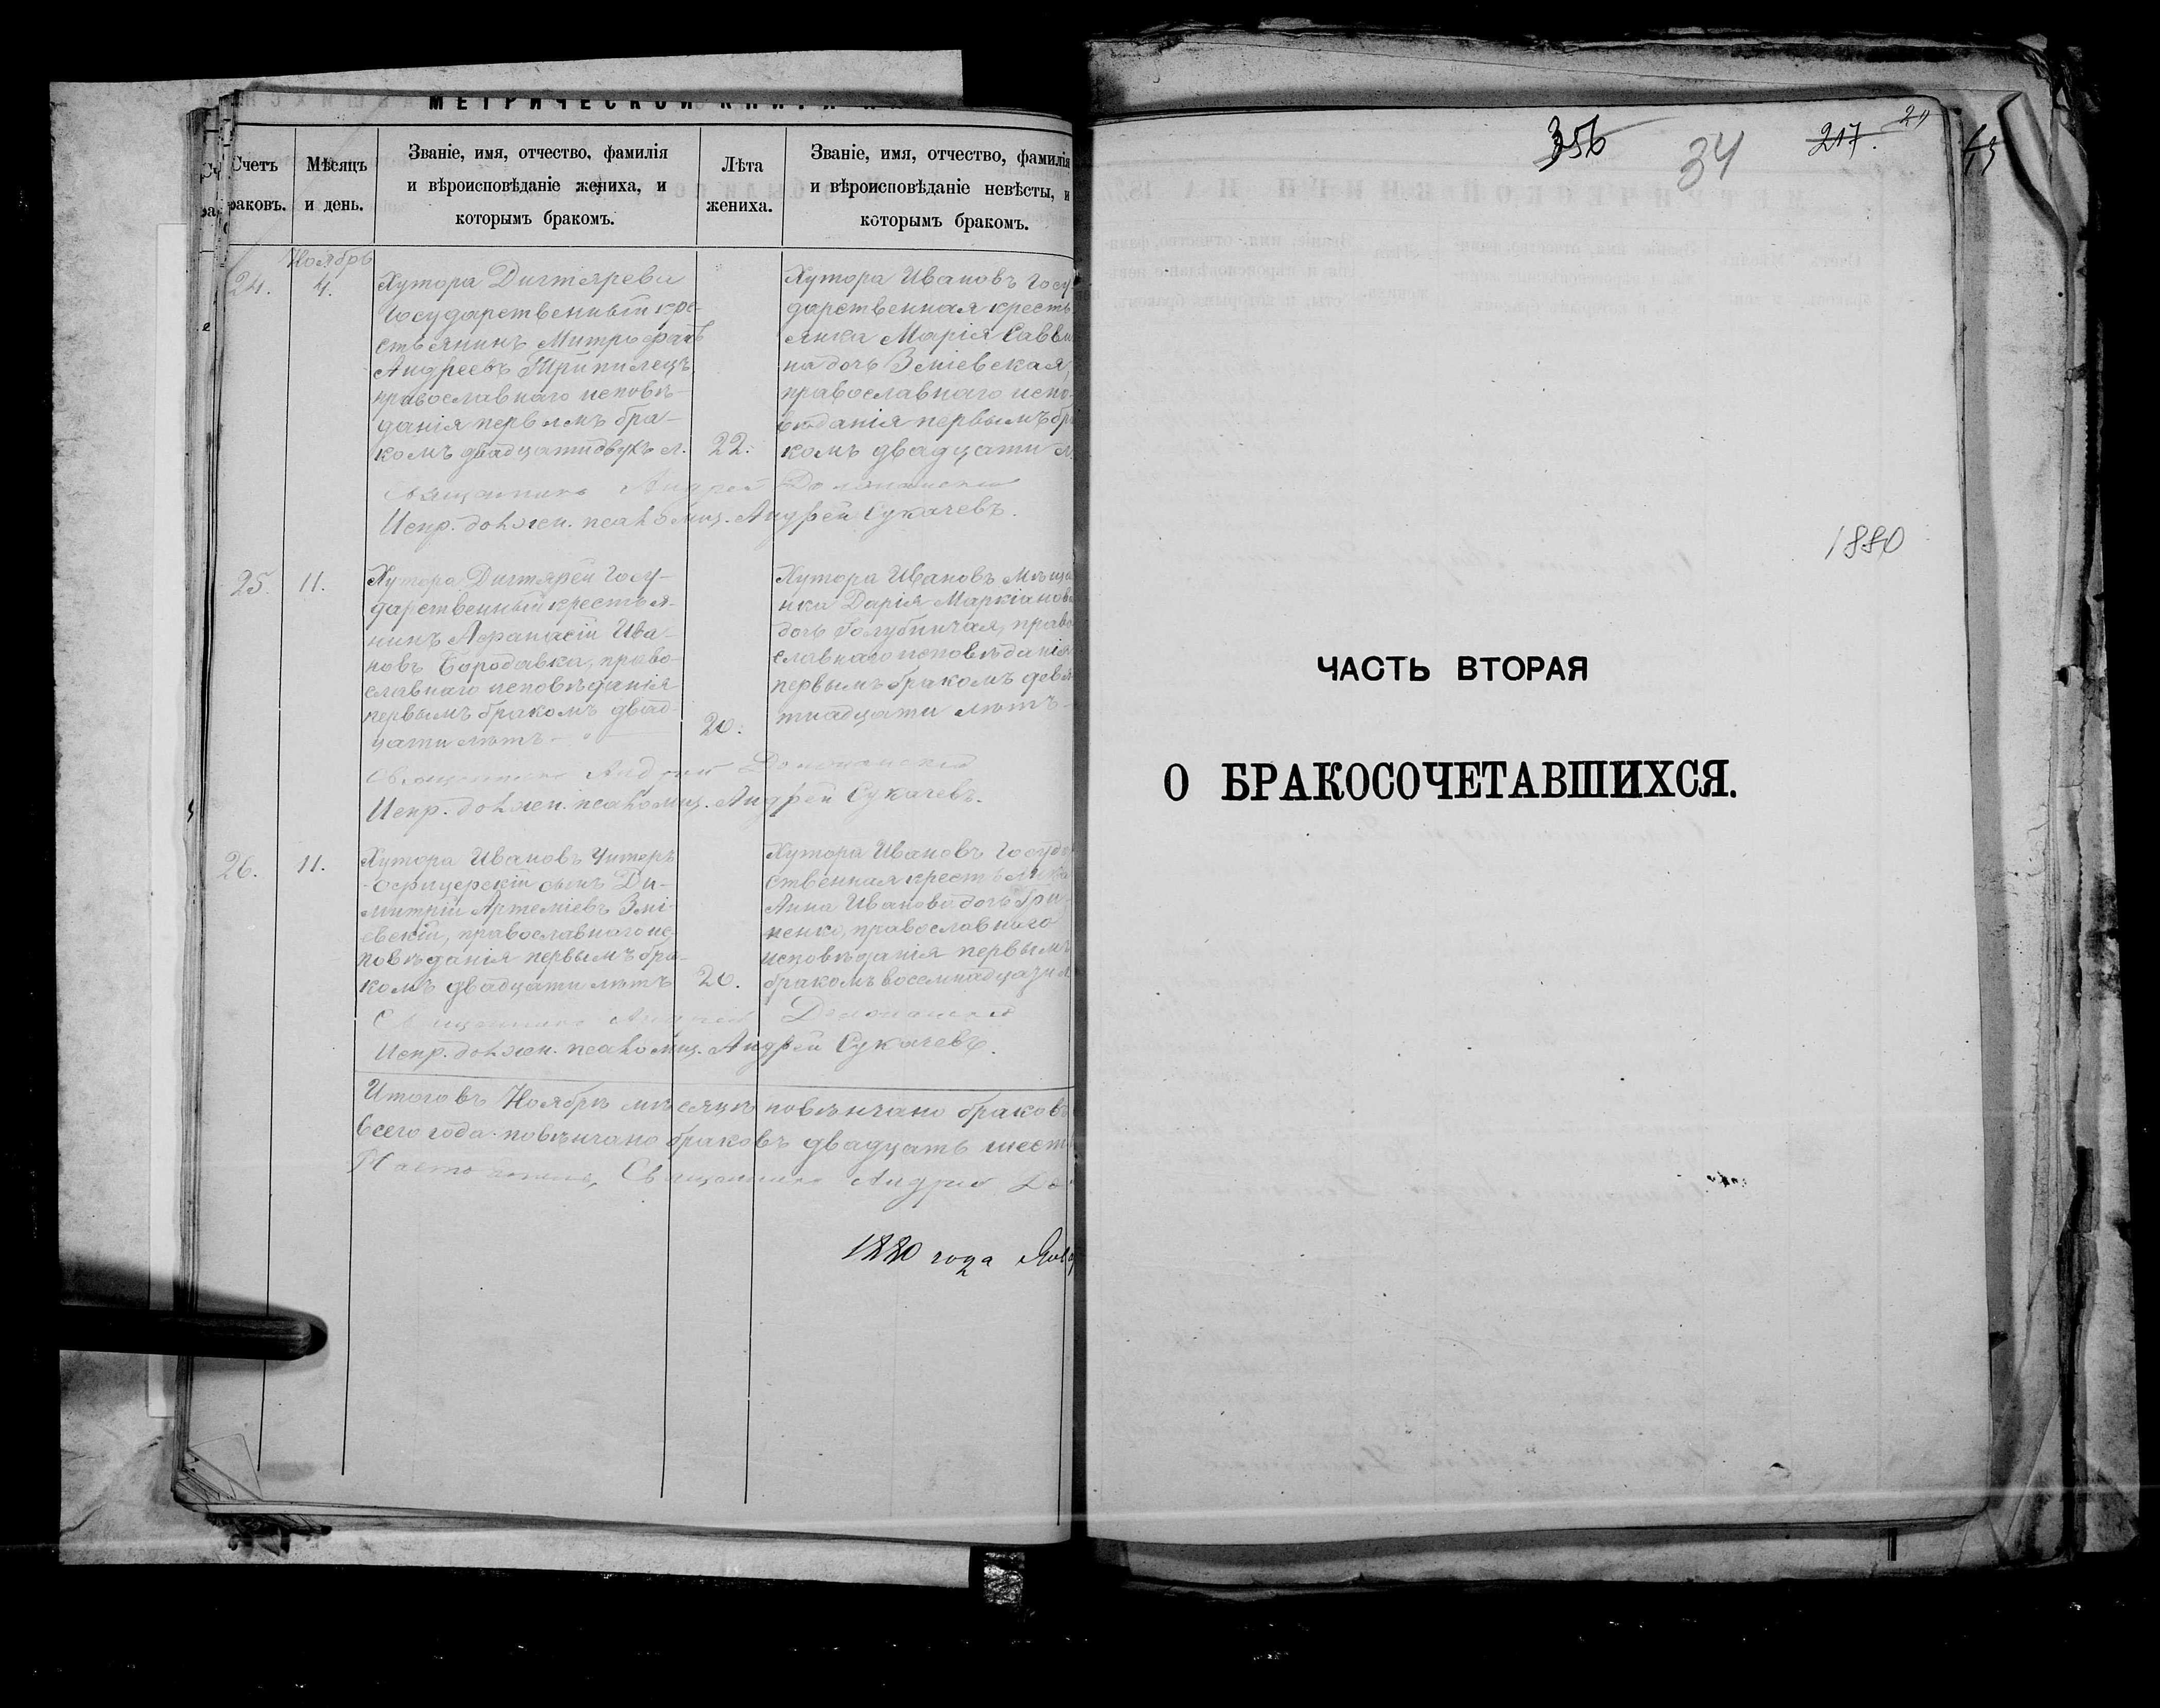 МЕТРИЧЕСКОЙ КНИГИ
Счетъ
раковъ.
Мѣсяцъ
и день.
Званіе, имя, отчество, фамилія
и вѣроисповѣданіе жениха, и
которымъ бракомъ.
Лѣта
жениха.
Званіе, имя, отчество, фамилія
и вѣроисповѣданіе невѣсты, и
которымъ бракомъ.
Ноябрь
24.
4.
Хутора
Государственный кре-
стьянинъ Митрофанъ
Андреевъ Трипилецъ
православнаго исповѣ-
данія первымъ бра-
комъ двадцатидвухъ л.
22.
Хутора Ивановъ Госу-
дарственная кресть
янка Марія Савви
на дочь Зміевская,
православнаго испо-
вѣданія первымъ бра
комъ двадцати л.
Священникъ Андрей
Испр. должн. псаломщ. Андрей Сукачевъ.
25.
11.
Хутора Дигтярей Госу-
дарственный крестья-
нинъ Афанасій Ива-
новъ Бородавка, право-
славнаго исповѣданія
первымъ бракомъ двад-
цати лѣтъ
20.
Хутора Ивановъ Мѣща
нка Дарія Маркіанова
дочь Голубничая, право
славнаго исповѣданія
первымъ бракомъ девя
тнадцати лѣтъ
Священникъ Андрей
Испр. должн. псаломщ. Андрей Сукачевъ.
26.
11.
Хутора Ивановъ Унтеръ
-офицерскій сынъ Ди-
митрій Артеміевъ Змі-
евскій, православнаго ис-
повѣданія первымъ бра-
комъ двадцати лѣтъ
20.
Хутора Ивановъ Госуда
ственная крестьянка
Анна Иванова дочь Гри
ненко, православнаго
исповѣданія первымъ
бракомъ восемнадцати л
Священникъ Андрей
Испр. должн. псаломщ. Андрей Сукачевъ.
Итого въ Ноябрѣ мѣсяцѣ повѣнчано браковъ
всего года повѣнчано браковъ двадцать шесть
Священникъ Андрей
1880 года
356
34
217.
1880
ЧАСТЬ ВТОРАЯ
О БРАКОСОЧЕТАВШИХСЯ.